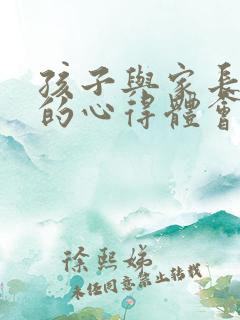 孩子與家長
的心得體會
徐熙娣
未经同意禁止转载